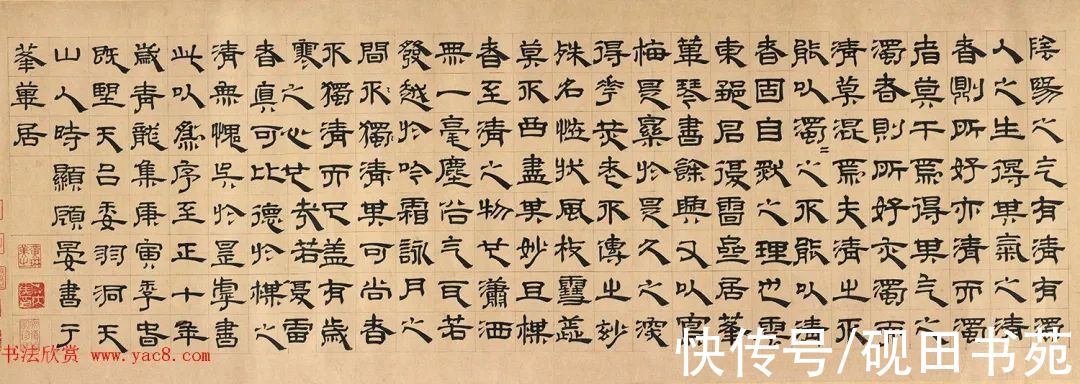 陰陽之气有清有濁
人之生得其氣之清
者則所好亦清而濁
者莫干焉得其气之
濁者則所好亦濁而
清莫混焉夫清之不
能以濁=之不能以清
者固自然之理也雲
東鄒君復雷居蓬
蓽琴書餘興又以寫
梅是寮於是久之深
得華光老不傳之妙
殊名恠狀風枝雪蕊
莫不曲盡其妙且楳
者至清之物也瀟洒
無一毫塵俗气若
發越於吟霜詠月之
間不獨清其可尚者
不獨清而已蓋有歲
寒之心也哉若復雷
者真可比德於楳之
清無愧矣於是乎書
此以為序至正十年
歲青龍集庚寅季春
既望天台委羽洞天
山人時顥顧晏書于
蓬蓽居
书法欣赏 www.yac8.com
快传号/砚田书苑